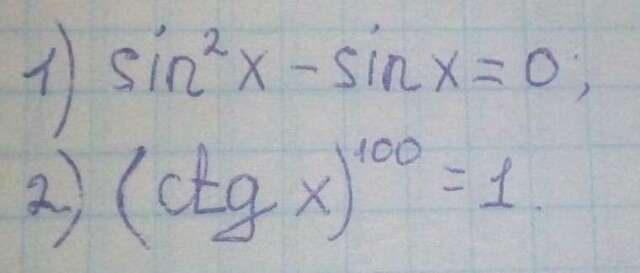 1) sin²x - sin x = 0;
2) (ctg x)¹⁰⁰ = 1.